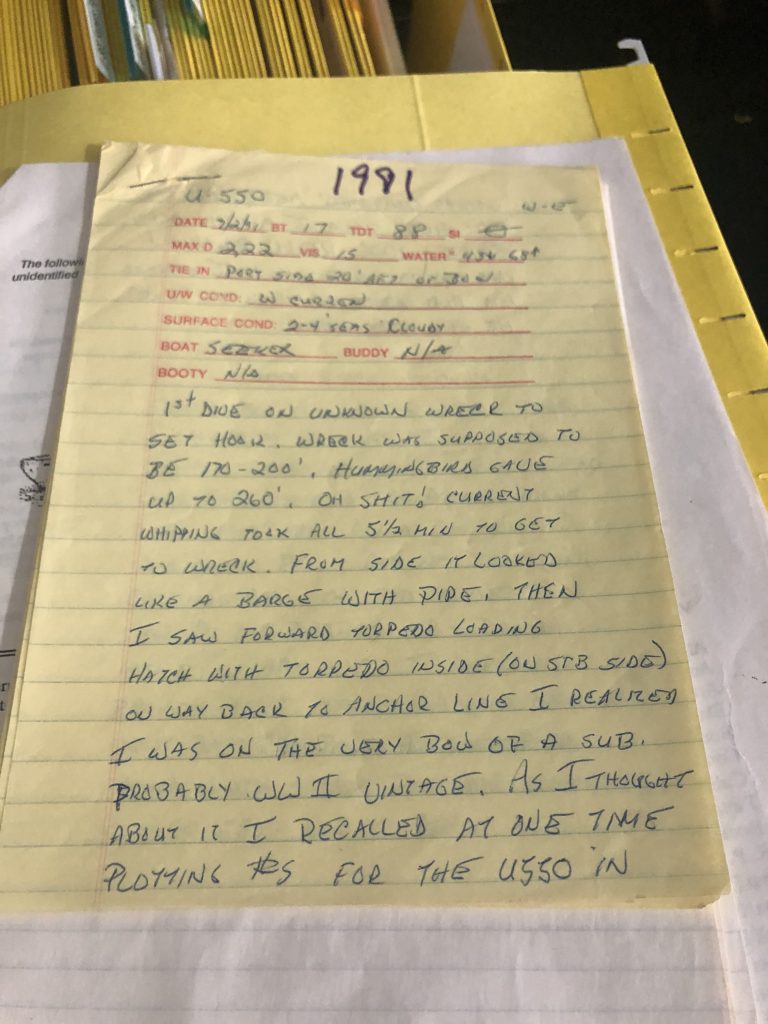 1981
U-550
DATE 9/2/91 BT 17 TDT 88 SI
MAX D 222 VIS 15 WATER° 43+ 68+
TIE IN PORT SIDE 20' AFT OF BOW
U/W COND: W CURREN
SURFACE COND: 2-4' SEAS CLOUDY
BOAT SEEKER BUDDY N/A
BOOTY N/A
1st DIVE ON UNKNOWN WRECK TO
SET HOOK. WRECK WAS SUPPOSED TO
BE 170-200'. HUMMINGBIRD GAVE
UP TO 260'. OH SHIT! CURRENT
WHIPPING TOOK ALL 5½ MIN TO GET
TO WRECK. FROM SIDE IT LOOKED
LIKE A BARGE WITH PIPE. THEN
I SAW FORWARD TORPEDO LOADING
HATCH WITH TORPEDO INSIDE (ON STB SIDE)
ON WAY BACK TO ANCHOR LINE I REALIZED
I WAS ON THE VERY BOW OF A SUB.
PROBABLY WW II VINTAGE. AS I THOUGHT
ABOUT IT I RECALLED AT ONE TIME
PLOTTING #S FOR THE U550 IN
The followi
unidentified